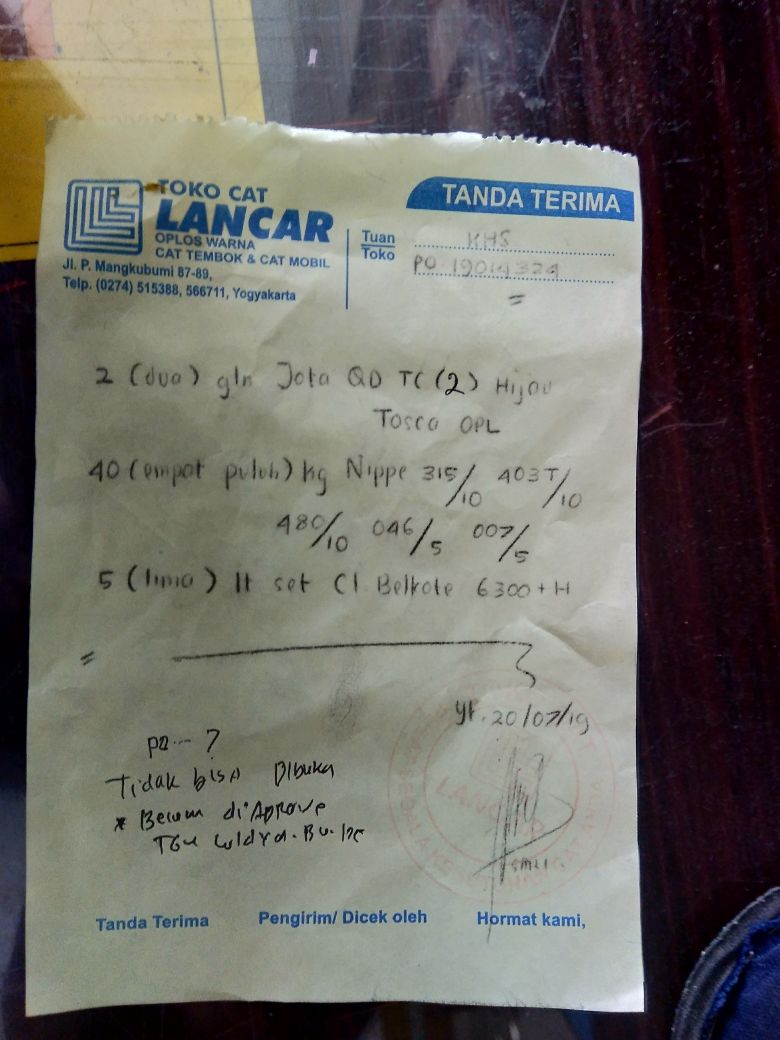 TOKO CAT
LANCAR
OPLOS WARNA
CAT TEMBOK & CAT MOBIL
Jl. P. Mangkubumi 87-89,
Telp. (0274) 515388, 566711, Yogyakarta
TANDA TERIMA
Tuan KHS
Toko PO 19014324
=
2 (dua) gln Jota QD TC (2) Hijau
Tosca OPL
40 (empat puluh) kg Nippe 315/10 403T/10
480/10 046/5 007/5
5 (lima) lt set Cl. Belkote 6300 + H
=
yk. 20/07/19
PO ... ?
Tidak bisA Dibuka
* Belum di Aprove
LANCAR
Tanda Terima Pengirim/ Dicek oleh Hormat kami,